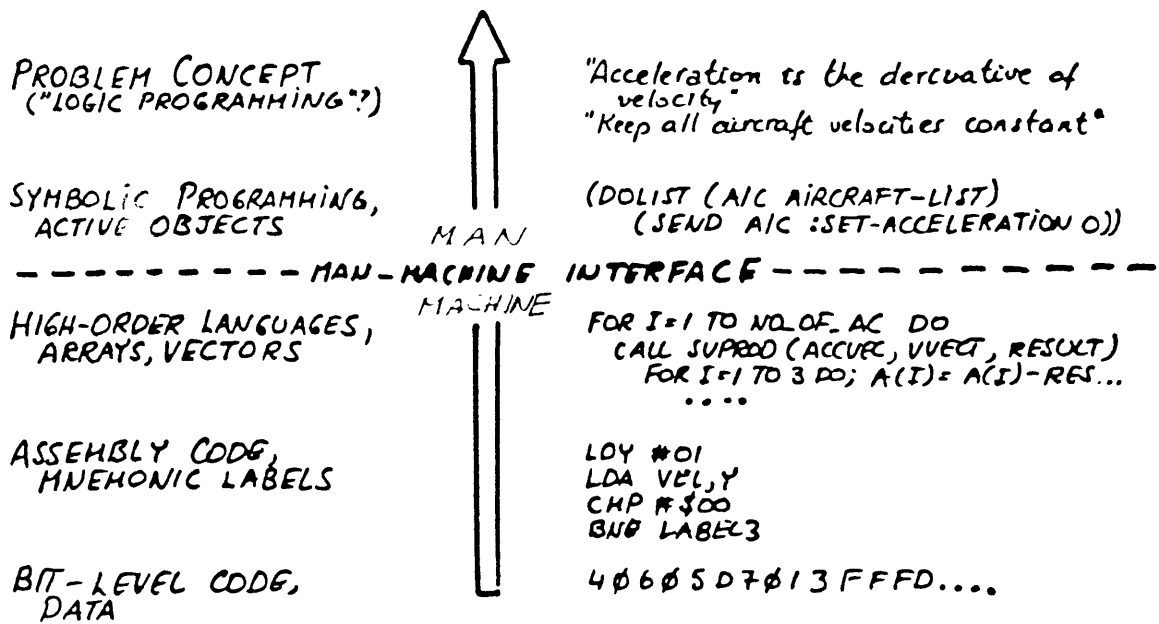 PROBLEM CONCEPT
("LOGIC PROGRAMMING"?)
"Acceleration is the derivative of
velocity"
"Keep all aircraft velocities constant"
SYMBOLIC PROGRAMMING,
ACTIVE OBJECTS
(DOLIST (A/C AIRCRAFT-LIST)
(SEND A/C :SET-ACCELERATION 0))
MAN
MAN-MACHINE INTERFACE
MACHINE
HIGH-ORDER LANGUAGES,
ARRAYS, VECTORS
FOR I=1 TO NO_OF_AC DO
CALL SVPROD (ACCVEC, VVECT, RESULT)
FOR I=1 TO 3 DO; A(I)= A(I)-RES...
....
ASSEMBLY CODE,
MNEMONIC LABELS
LDY #01
LDA VEL,Y
CMP #$00
BNE LABEL3
BIT-LEVEL CODE,
DATA
40605D7013FFFD....